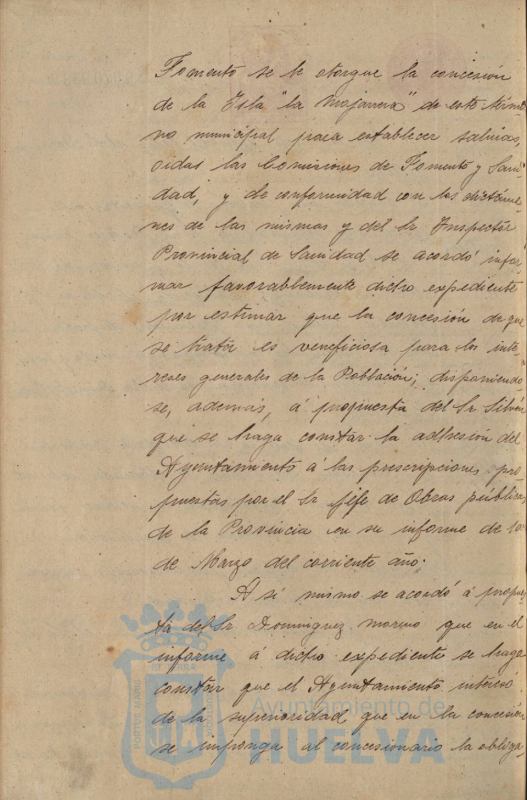 Fomento se le otorgue la concesión
de la Isla "la mojarrera" de este térmi-
no municipal para establecer salinas,
oidas las Comisiones de Fomento y Sani-
dad, y de conformidad con los dictáme-
nes de las mismas y del Sr Inspector
Provincial de Sanidad se acordó infor-
mar favorablemente dicho expediente
por estimar que la concesión de que
se trata es veneficiosa para los inte-
reses generales de la Población; disponiendo-
se, además, á propuesta del Sr Silvés
que se haga constar la adhesión del
Ayuntamiento á las prescripciones pro-
puestas por el Sr Jefe de Obras públicas
de la Provincia en su informe de 10
de Marzo del corriente año.
Asi mismo se acordó á propues-
ta del Sr Dominguez moreno que en el
informe á dicho expediente se haga
constar que el Ayuntamiento intereso
de la superioridad que en la concesión
se imponga al concesionario la obliga
Ayuntamiento de
HUELVA